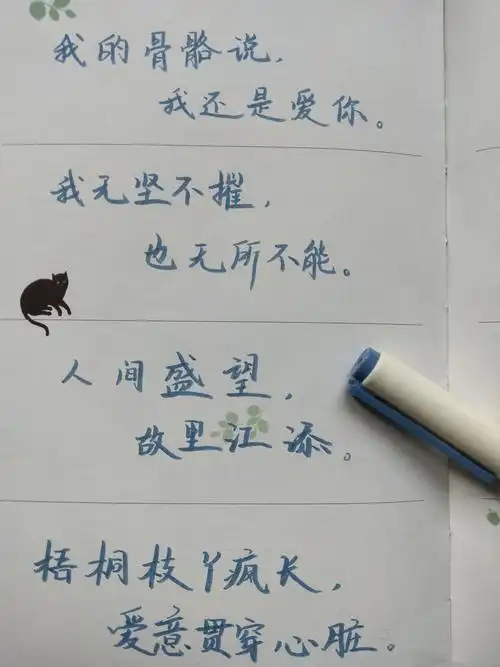 我的骨骼说，
我还是爱你。
我无坚不摧，
也无所不能。
人间盛望，
故里江添。
梧桐枝丫疯长，
爱意贯穿心脏。